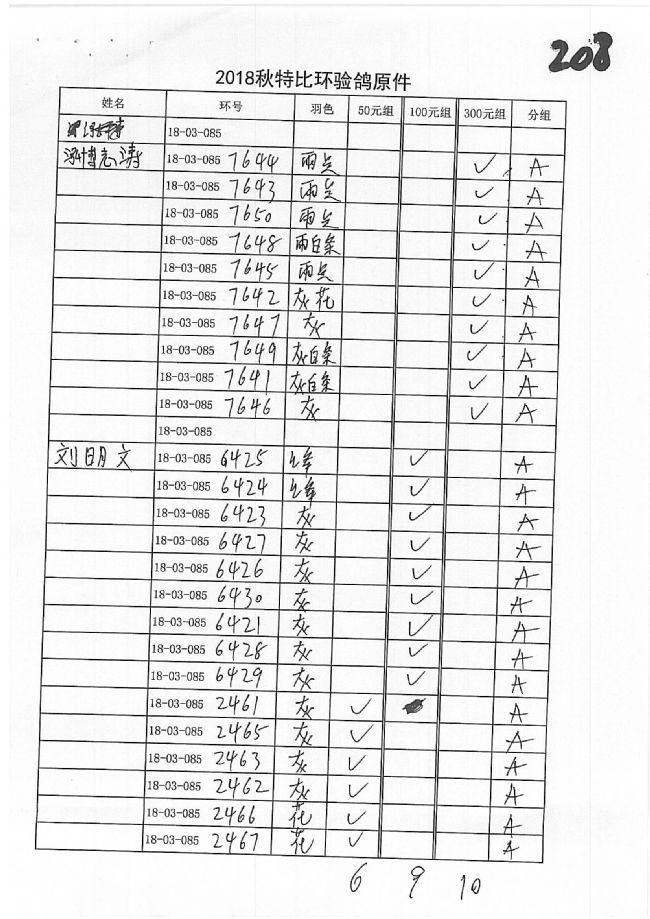 208
2018秋特比环验鸽原件
姓名 环号 羽色 50元组 100元组 300元组 分组
18-03-085
志涛 18-03-085 7644 雨点 ✓ A
18-03-085 7643 雨点 ✓ A
18-03-085 7650 雨点 ✓ A
18-03-085 7648 雨白条 ✓ A
18-03-085 7645 雨点 ✓ A
18-03-085 7642 灰花 ✓ A
18-03-085 7647 灰 ✓ A
18-03-085 7649 灰白条 ✓ A
18-03-085 7641 灰白条 ✓ A
18-03-085 7646 灰 ✓ A
18-03-085
刘明文 18-03-085 6425 ✓ A
18-03-085 6424 ✓ A
18-03-085 6423 灰 ✓ A
18-03-085 6427 灰 ✓ A
18-03-085 6426 灰 ✓ A
18-03-085 6430 灰 ✓ A
18-03-085 6421 灰 ✓ A
18-03-085 6428 灰 ✓ A
18-03-085 6429 灰 ✓ A
18-03-085 2461 灰 ✓ A
18-03-085 2465 灰 ✓ A
18-03-085 2463 灰 ✓ A
18-03-085 2462 灰 ✓ A
18-03-085 2466 花 ✓ A
18-03-085 2467 花 ✓ A
6 9 10